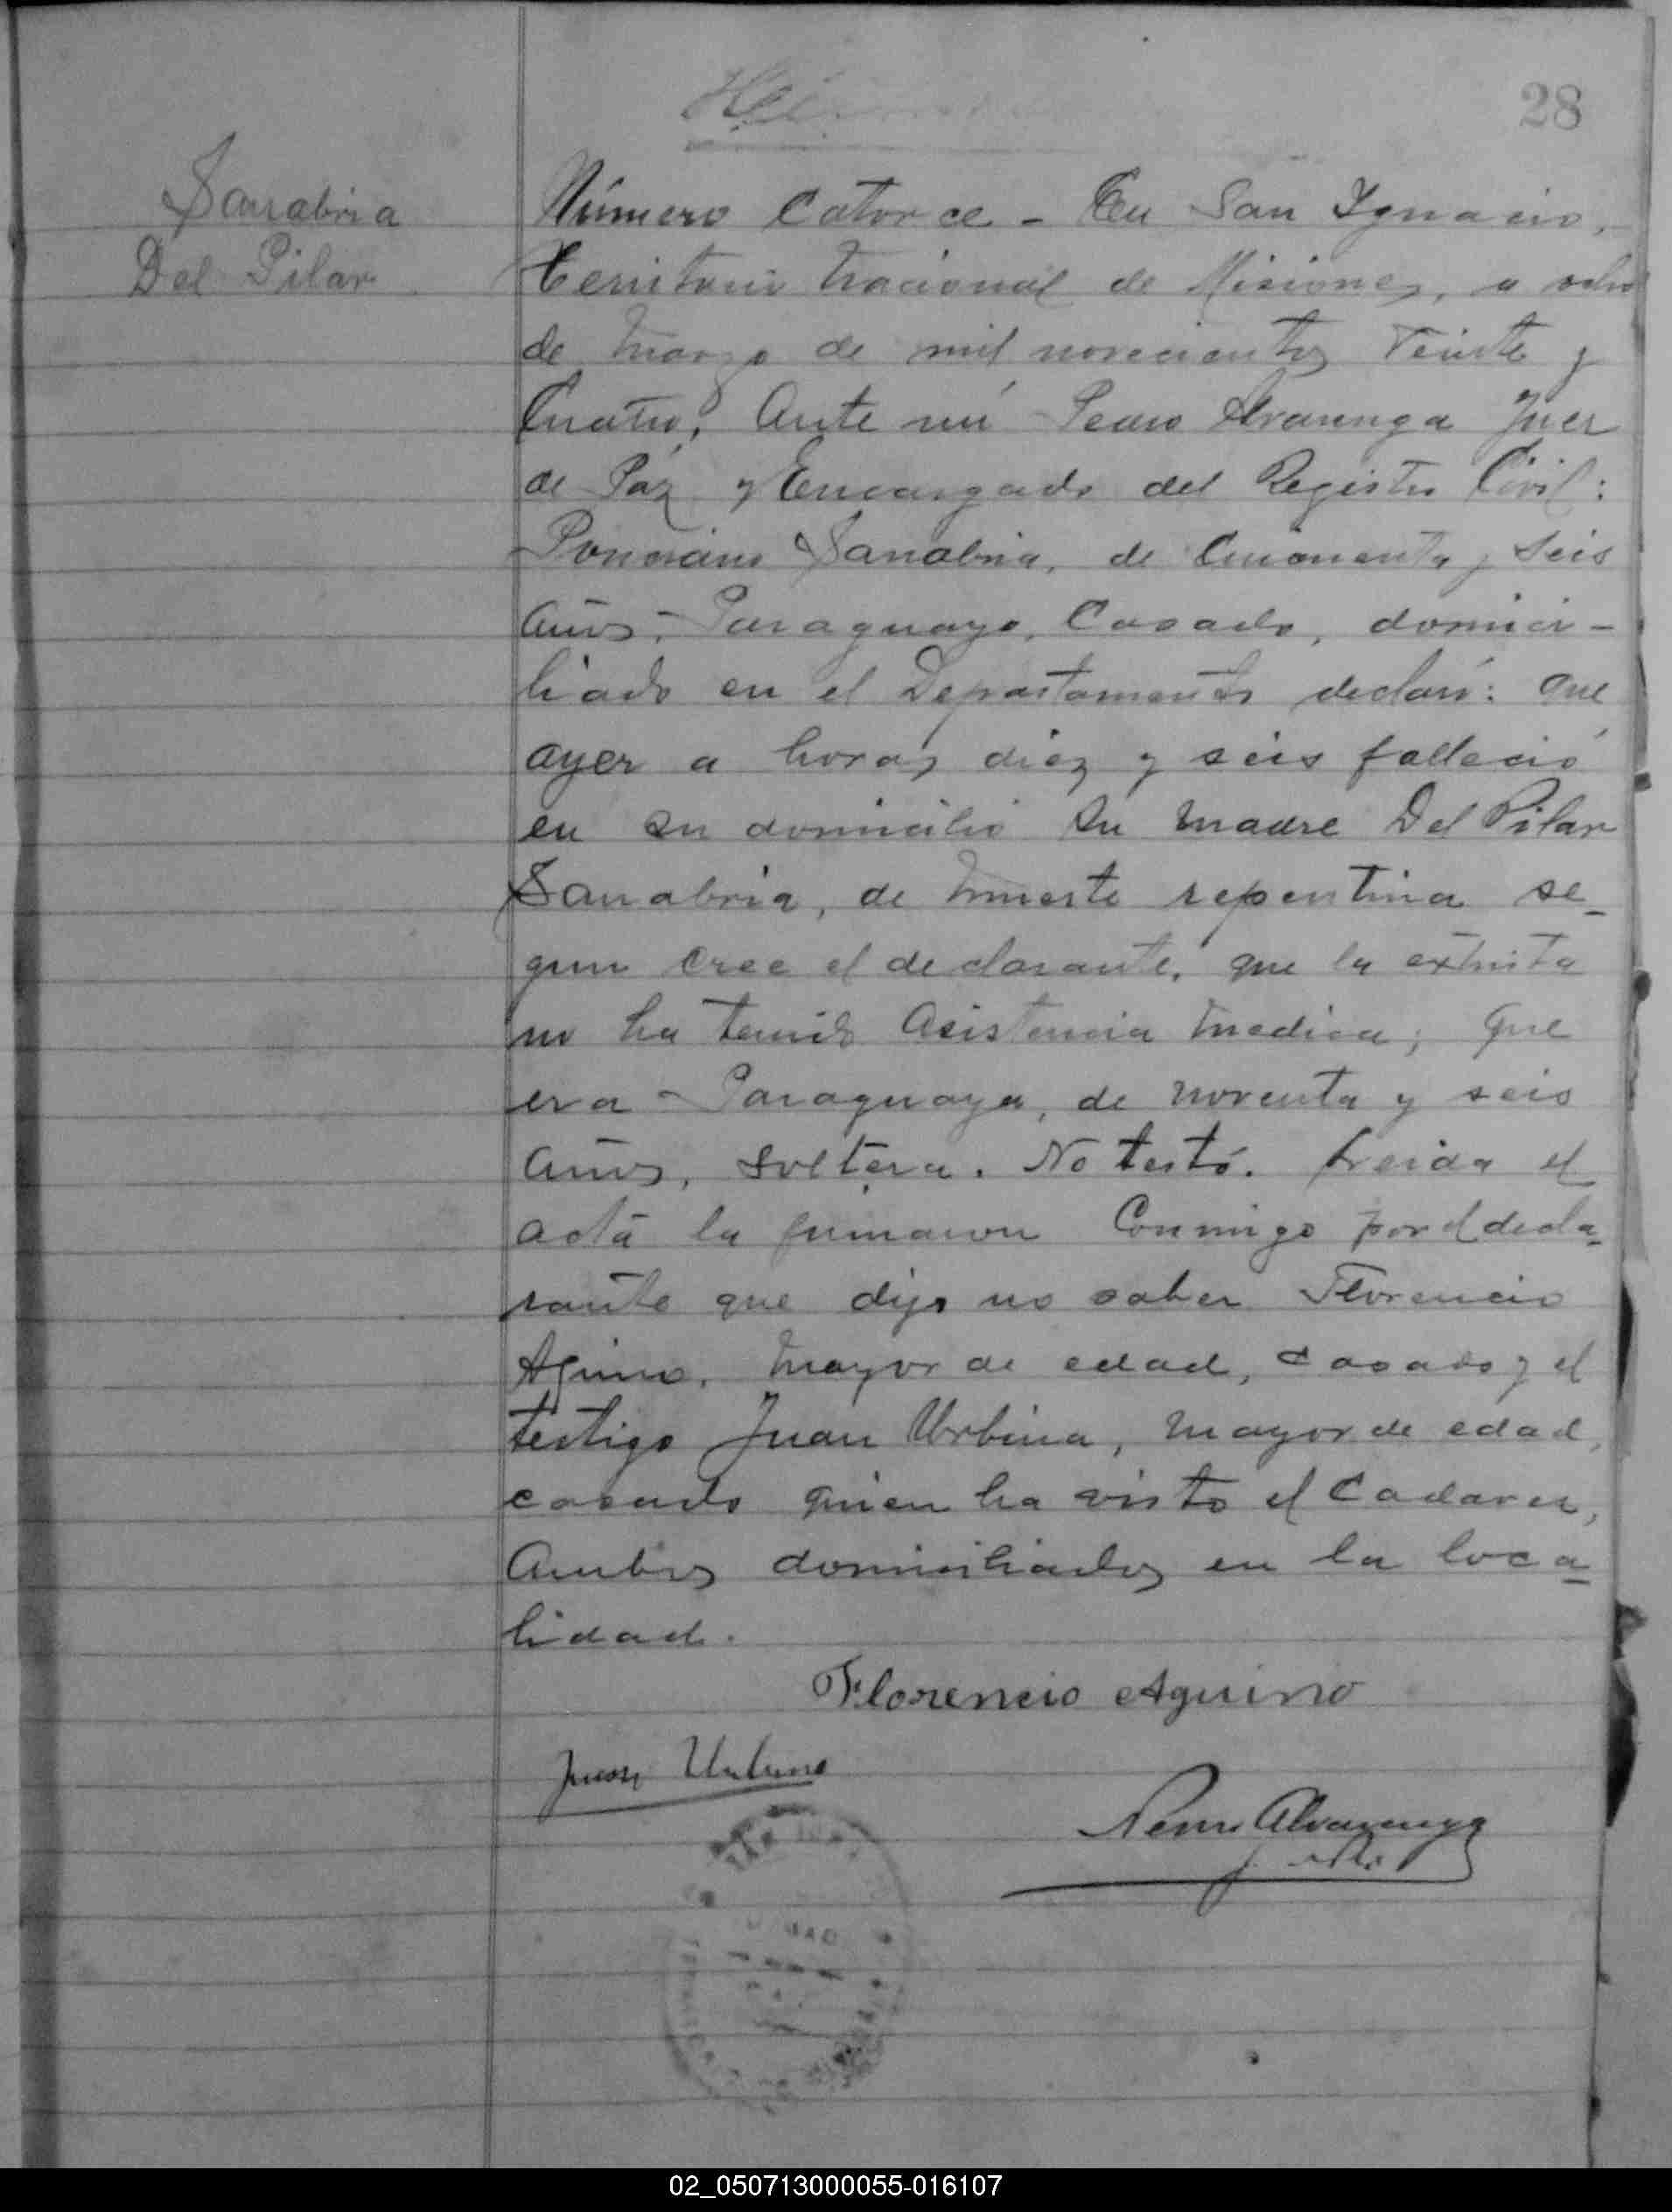 28
Sanabria
Del Pilar
Número Catorce - En San Ygnacio,
Territorio Nacional de Misiones, a ocho
de Marzo de mil novecientos Veinte y
Cuatro, Ante mí Pedro Alvarenga Juez
de Páz y Encargado del Registro Civil:
Ponciano Sanabria, de Cincuenta y Seis
años, Paraguayo, Casado, domici-
liado en el Departamento declaró: Que
ayer a horas diez y seis falleció
en su domicilio su madre Del Pilar
Sanabria, de muerte repentina se-
gun cree el declarante, que la extinta
no ha tenido Asistencia medica; que
era Paraguaya, de noventa y seis
años, soltera. No testó. Leida el
acta la firmaron Conmigo por el decla-
rante que dijo no saber Florencio
Aquino, mayor de edad, casado y el
testigo Juan Urbina, mayor de edad,
casado quien ha visto el Cadaver,
Ambos domiciliados en la loca-
lidad.
Florencio Aquino
Juan Urbina
Alvarenga
02_050713000055-016107